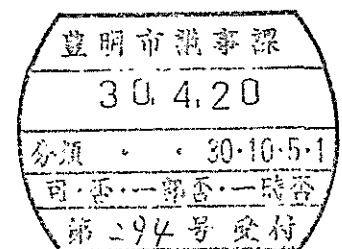 豊明市議事課
30.4.20
分類 ・ ・ 30・10・5・1
可・否・一部否・一時否
第294号受付